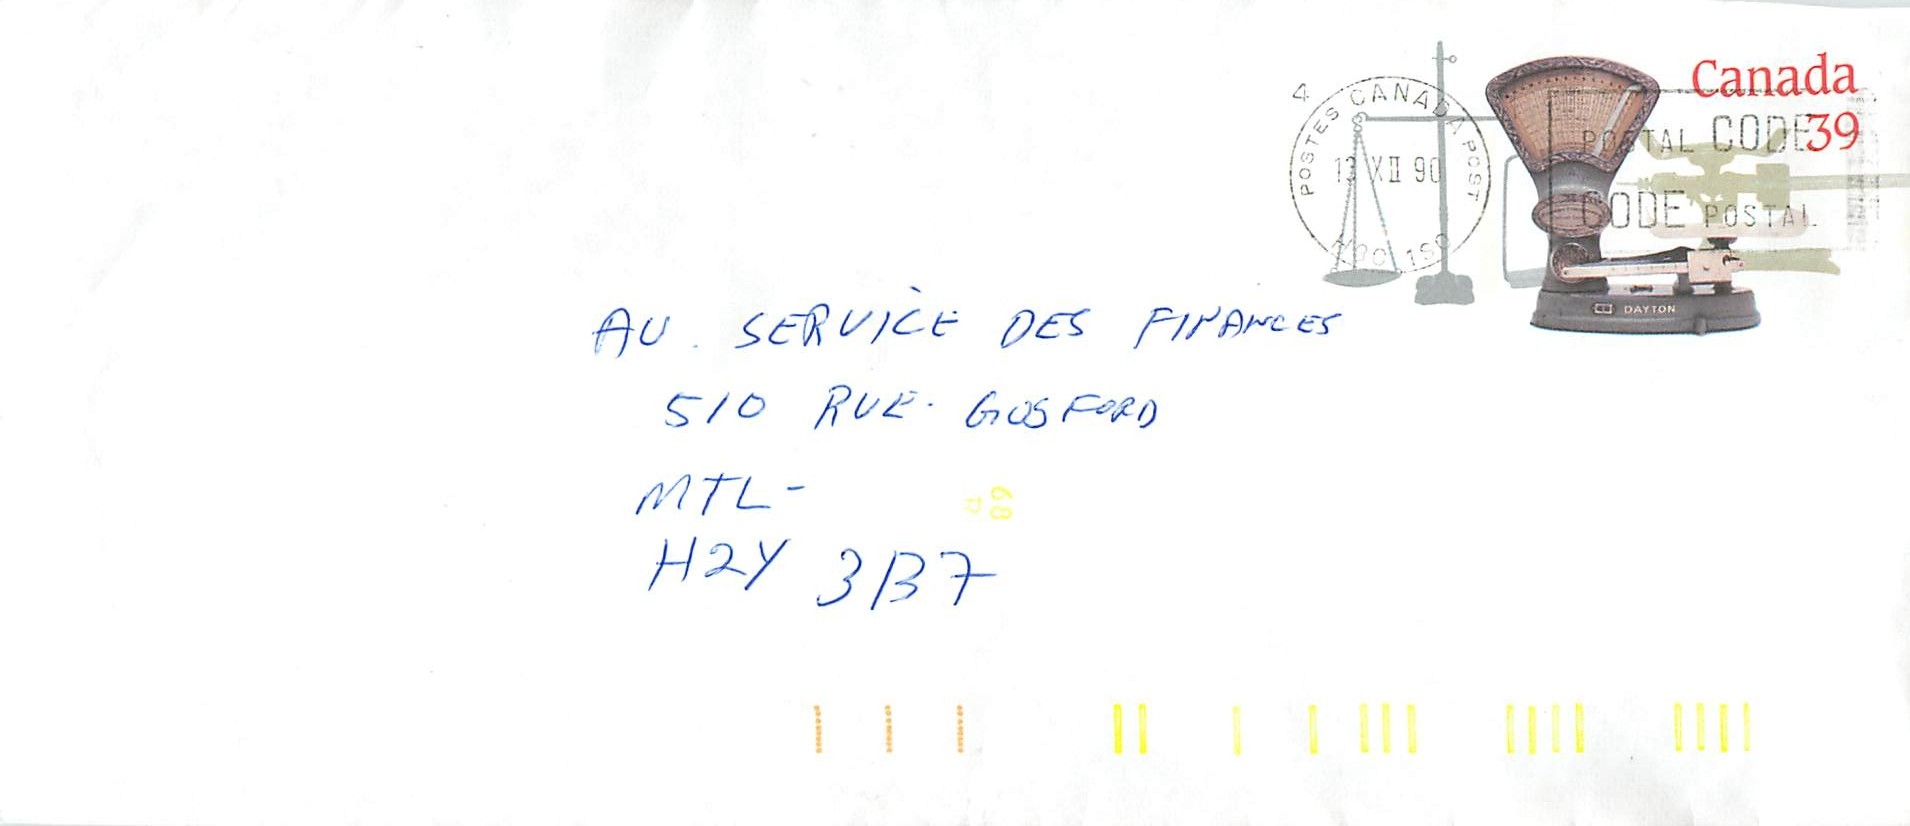 Canada
39
4
POSTES CANADA POST
13 XII 90
POSTAL CODE
CODE POSTAL
DAYTON
AU. SERVICE DES FINANCES
510 RUE. GOSFORD
MTL-
H2Y 3B7
68